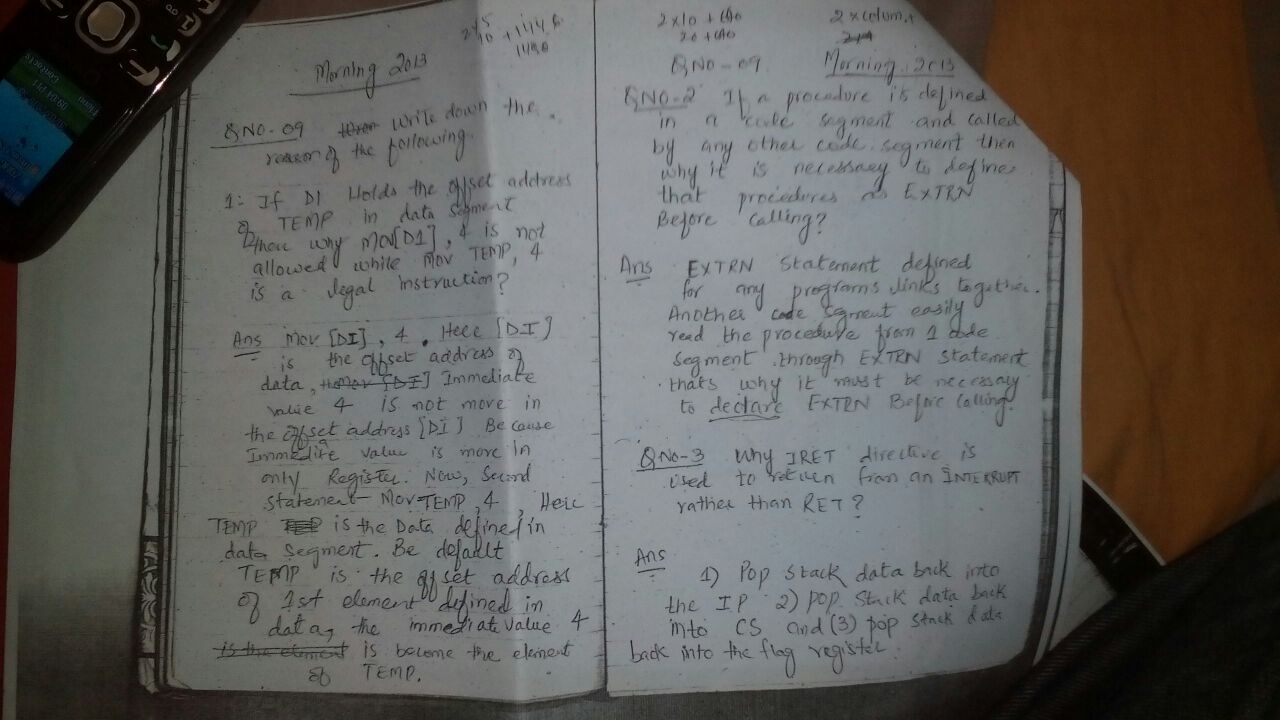 Morning 2013
QNO-09 Write down the
reason of the following.
1:- If DI Holds the offset address
of TEMP in data segment
then why MOV[DI], 4 is not
allowed while MOV TEMP, 4
is a legal instruction?
Ans Mov [DI], 4. Here [DI]
is the offset address of
data, Immediate
value 4 is not move in
the offset address [DI] Because
Immedite value is move in
only Register. Now, Second
statement Mov TEMP, 4, Here
TEMP is the Data defined in
data segment. Be default
TEMP is the offset address
of 1st element defined in
data, the immediate value 4
is become the element
of TEMP.
2x10 +
20 +
2 x colum,+
QNO-09 Morning, 2013
QNO-2 If a procedure is defined
in a code segment and called
by any other code segment then
why it is necessary to define
that procedures as EXTRN
Before calling?
Ans EXTRN Statement defined
for any programs links together.
Another code segment easily
read the procedure from 1 code
segment through EXTRN statement
thats why it must be necessary
to declare EXTRN Before Calling.
QNO-3 Why IRET directive is
used to return from an INTERRUPT
rather than RET?
Ans
1) Pop stack data back into
the IP 2) pop stack data back
into CS and (3) pop stack data
back into the flag register.